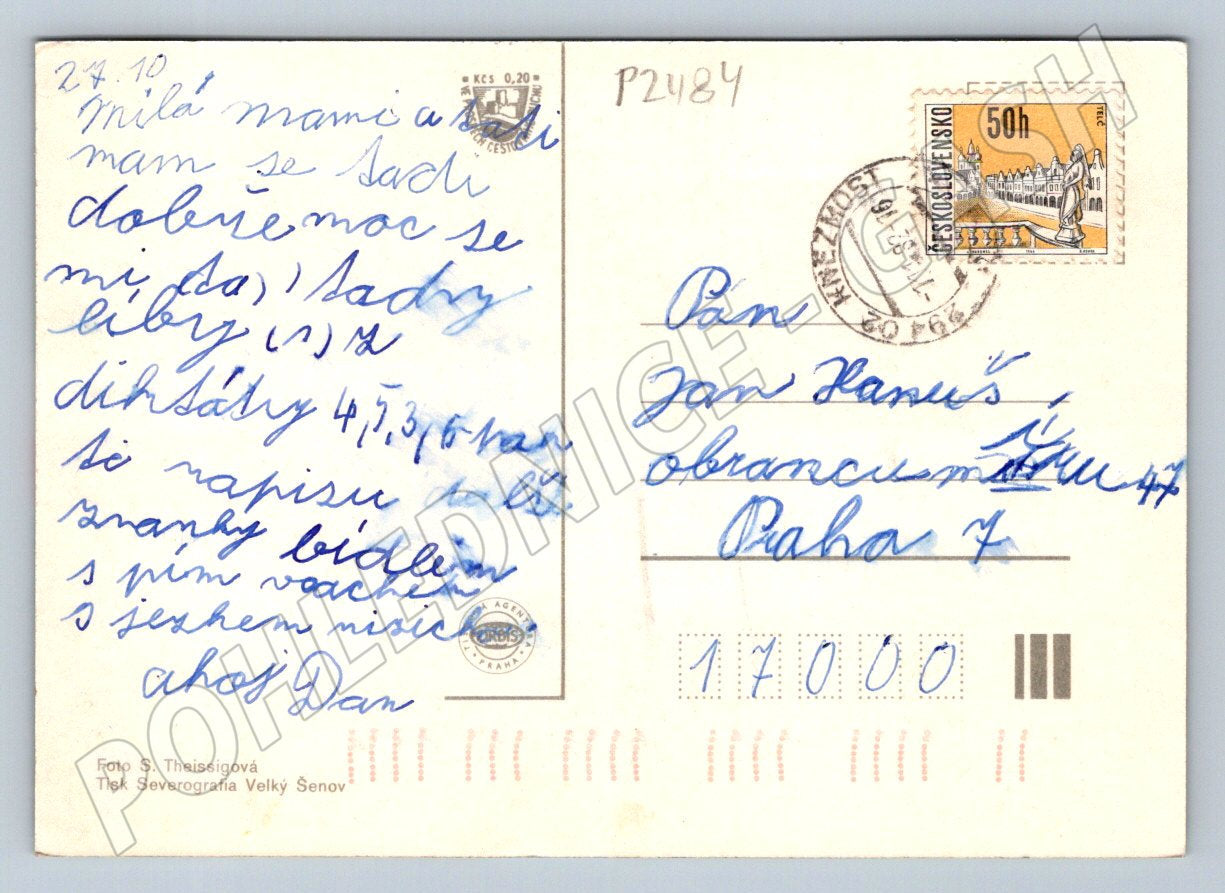 27.10
Milá mami a tati
mam se tadi
dobře moc se
mi tady
líby (1) z
diktátry 4,5,3,6 tar
ti napisu dalšť
znanky bídlem
s pím voachem
s jezhem nisich
ahoj Dan
Kčs 0,20
P2484
50h
ČESKOSLOVENSKO
TELČ
294 02 KNEZMOST
Pán
Jan Hanuš,
obrancu míru 47
Praha 7
17000
ORBIS
PRAHA
Foto S. Theissigová
Tisk Severografia Velký Šenov
POHLEDNICE - GHISH